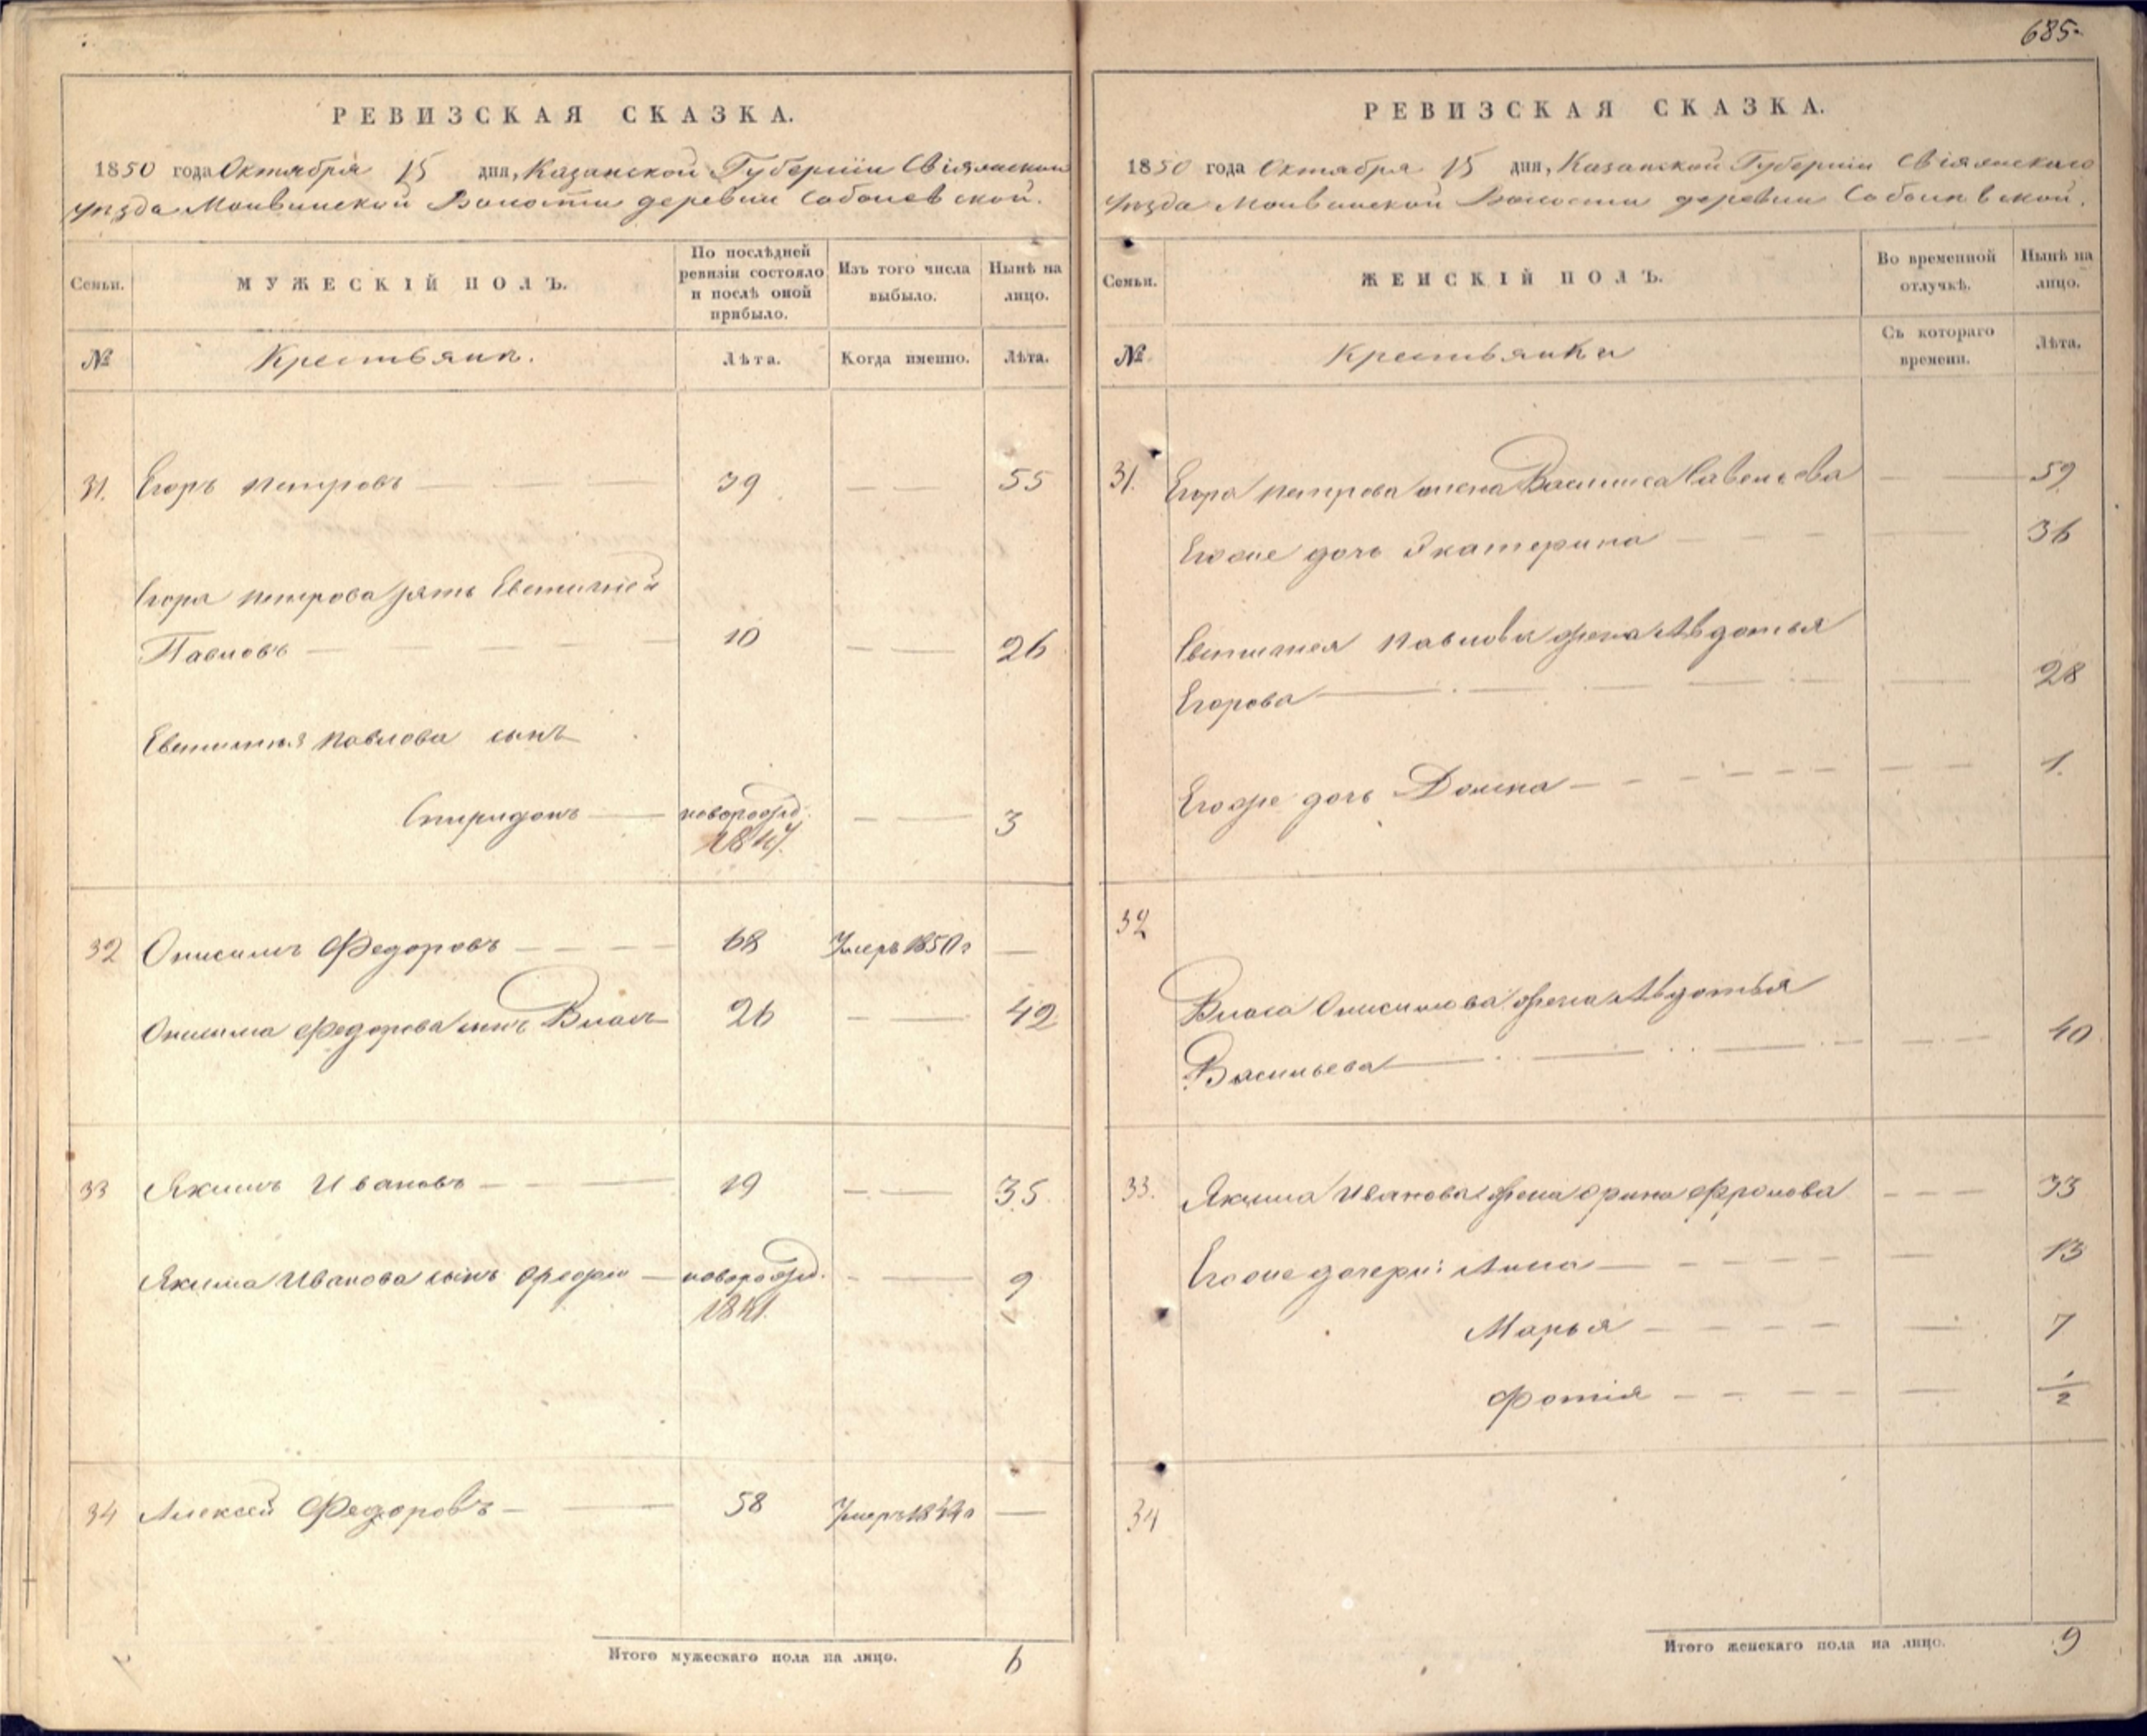 685.
РЕВИЗСКАЯ СКАЗКА.
1850 года Октября 15 дня, Казанской Губерніи Свіяжской
уѣзда Молвинской Волости деревни Соболевской.
Семьи.
МУЖЕСКІЙ ПОЛЪ.
По послѣдней
ревизіи состояло
и послѣ оной
прибыло.
Изъ того числа
выбыло.
Нынѣ на
лицо.
№
Крестьянъ.
Лѣта.
Когда именно.
Лѣта.
31. Егоръ Петровъ 39 55
Егора Петрова зять Евтихіей
Павловъ 10 26
Павлова сынъ
Спиридонъ новорожд. 3
1847.
32 Онисимъ Федоровъ 68 Умеръ 1850 г —
Онисима Федорова сынъ Власъ 26 42
33 Якимъ Ивановъ 19 35.
Якима Иванова сынъ новорожд. 9
1841.
34 Алексей Федоровъ 58 Умеръ —
Итого мужескаго пола на лицо. 6
РЕВИЗСКАЯ СКАЗКА.
1850 года Октября 15 дня, Казанской Губерніи Свіяжскаго
уѣзда Молвинской Волости деревни Соболевской.
Семьи.
ЖЕНСКІЙ ПОЛЪ.
Во временной
отлучкѣ.
Нынѣ на
лицо.
№
Крестьянки
Съ котораго
времени.
Лѣта.
31. Егора Петрова жена Василиса Савельева 59
Егоже дочь Екатерина 36
Павлова жена Авдотья
Егорова 28
Егоже дочь Домна 1.
32
Власа Онисимова жена Авдотья
Васильева 40
33. Якима Иванова жена Орина Фролова 33
Егоже дочери: Анна 13
Марья 7
Фотія 1/2
34
Итого женскаго пола на лицо. 9